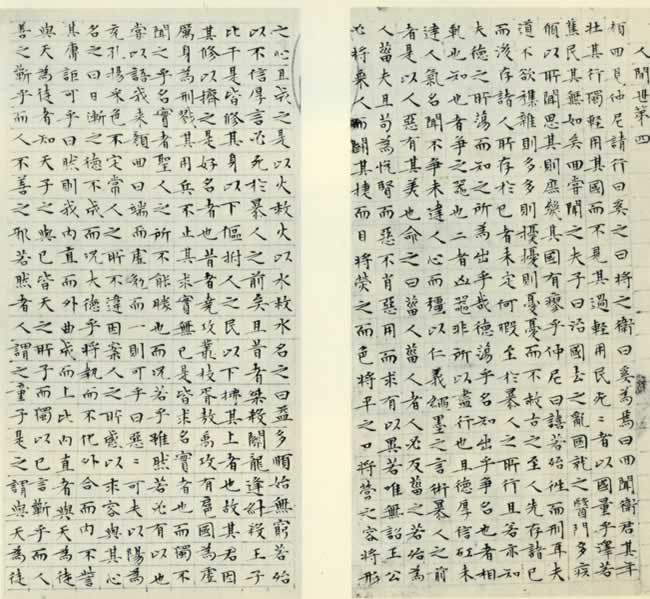 人閒世第四
顏回見仲尼請行曰奚之曰將之衛曰奚為焉曰回聞衛君其年
壯其行獨輕用其國而不見其過輕用民死〻者以國量乎澤若
蕉民其無如矣回嘗聞之夫子曰治國去之亂國就之醫門多疾
願以所聞思其則庶幾其國有瘳乎仲尼曰譆若殆往而刑耳夫
道不欲雜雜則多多則擾擾則憂憂而不救古之至人先存諸已
而後存諸人所存於已者未定何暇至於暴人之所行且若亦知
夫德之所蕩而知之所為出乎哉德蕩乎名知出乎爭名也者相
軋也知也者爭之器也二者凶器非所以盡行也且德厚信矼未
達人氣名聞不爭未達人心而彊以仁義繩墨之言術暴人之前
者是以人惡有其美也命之曰菑人菑人者人必反菑之若殆為
人菑夫且苟為悅賢而惡不肖惡用而求有以異若唯無詔王公
必將乘人而鬭其捷而目將熒之而色將平之口將營之容將形
之心且成之是以火救火以水救水名之曰益多順始無窮若殆
以不信厚言必死於暴人之前矣且昔者桀殺關龍逢紂殺王子
比干是皆修其身以下傴拊人之民以下拂其上者也故其君因
其修以擠之是好名者也昔者堯攻叢枝胥敖禹攻有扈國為虛
厲身為刑戮其用兵不止其求實無已是皆求名實者也而獨不
聞之乎名實者聖人之所不能勝也而況若乎雖然若必有以也
嘗以語我來顏回曰端而虛勉而一則可乎曰惡〻可夫以陽為
充孔揚采色不定常人之所不違因案人之所感以求容與其心
名之曰日漸之德不成而況大德乎將執而不化外合而內不訾
其庸詎可乎曰然則我內直而外曲成而上比內直者與天為徒
與天為徒者知天子之與已皆天之所子而獨以已言蘄乎而人
善之蘄乎而人不善之邪若然者人謂之童子是之謂與天為徒